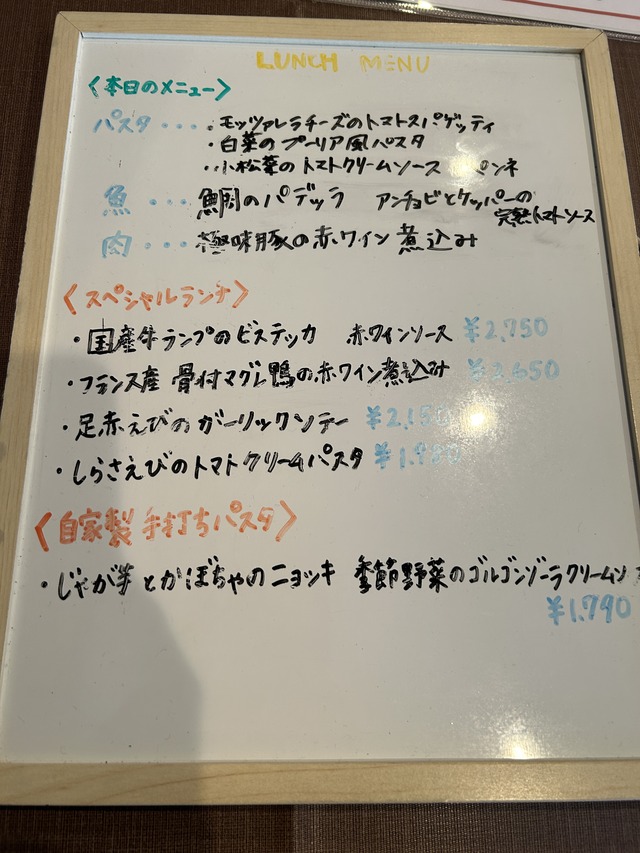 LUNCH MENU
〈本日のメニュー〉
パスタ・・・・モッツァレラチーズのトマトスパゲッティ
・白菜のプーリア風パスタ
・小松菜のトマトクリームソース ペンネ
魚・・・鯛のパデッラ アンチョビとケッパーの
完熟トマトソース
肉・・・極味豚の赤ワイン煮込み
〈スペシャルランチ〉
・国産牛ランプのビステッカ 赤ワインソース ¥2,750
・フランス産 骨付マグレ鴨の赤ワイン煮込み ¥2,650
・足赤えびのガーリックソテー ¥2,1
・しらさえびのトマトクリームパスタ ¥1,980
〈自家製 手打ちパスタ〉
・じゃが芋とかぼちゃのニョッキ 季節野菜のゴルゴンゾーラクリームソ
¥1,790